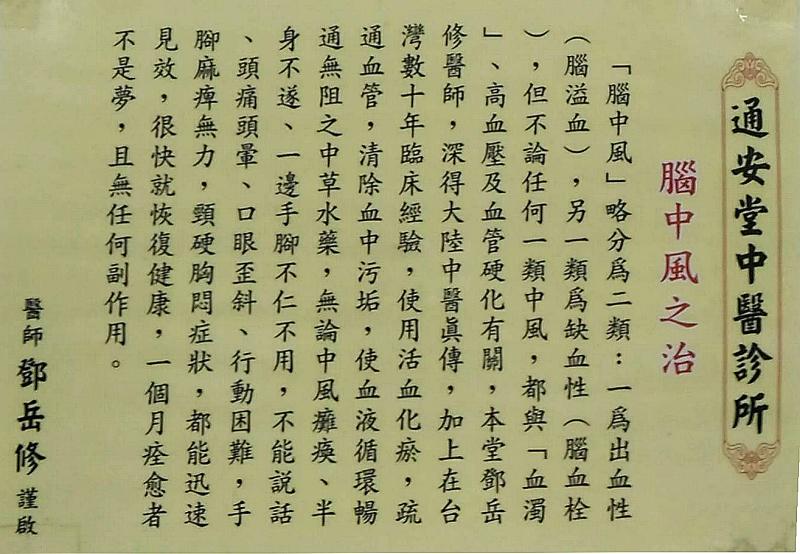 通安堂中醫診所
腦中風之治
「腦中風」略分爲二類：一爲出血性
（腦溢血），另一類爲缺血性（腦血栓
），但不論任何一類中風，都與「血濁
」、高血壓及血管硬化有關，本堂鄧岳
修醫師，深得大陸中醫眞傳，加上在台
灣數十年臨床經驗，使用活血化瘀，疏
通血管，清除血中污垢，使血液循環暢
通無阻之中草水藥，無論中風癱瘓、半
身不遂、一邊手腳不仁不用，不能說話
、頭痛頭暈、口眼歪斜、行動困難，手
腳麻痺無力，頸硬胸悶症狀，都能迅速
見效，很快就恢復健康，一個月痊愈者
不是夢，且無任何副作用。
醫師 鄧岳修 謹啟